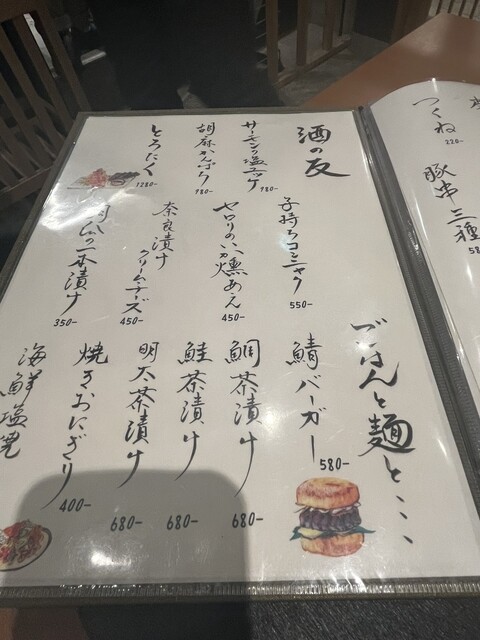 酒の友
サーモンの塩ユッケ
780-
胡麻かんぱち
780-
とろたく
1280-
子持ちコンニャク
550-
セロリのいか燻あえ
450-
奈良漬け
クリームチーズ
450-
胡瓜の一本漬け
350-
ごはんと麺と…
鯖バーガー
580-
鯛茶漬け
680-
鮭茶漬け
680-
明太茶漬け
680-
焼きおにぎり
400-
海鮮塩焼
つくね
220-
豚串三種
58